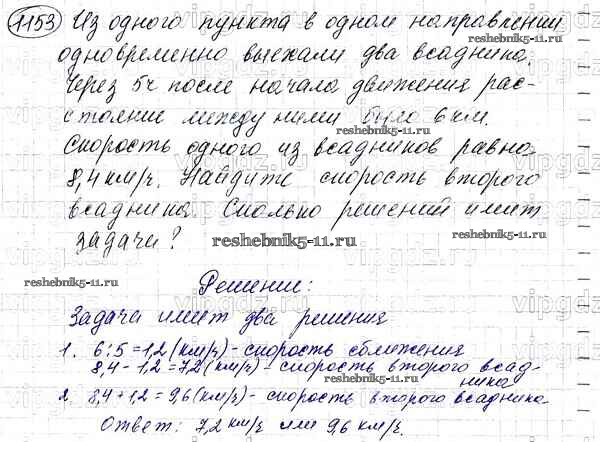 1153 Из одного пункта в одном направлении
одновременно выехали два всадника.
Через 5ч после начала движения рас-
стояние между ними было 6 км.
Скорость одного из всадников равна
8,4 км/ч. Найдите скорость второго
всадника. Сколько решений имеет
задача?
Решение:
Задача имеет два решения
1. 6:5=1,2(км/ч)-скорость сближения
8,4-1,2=7,2(км/ч)-скорость второго всад-
ника
2. 8,4+1,2=9,6(км/ч)-скорость второго всадника.
Ответ: 7,2 км/ч или 9,6 км/ч.
reshebnik5-11.ru
reshebnik5-11.ru
reshebnik5-11.ru
reshebnik5-11.ru
reshebnik5-11.ru
reshebnik5-11.ru
vipgdz.ru